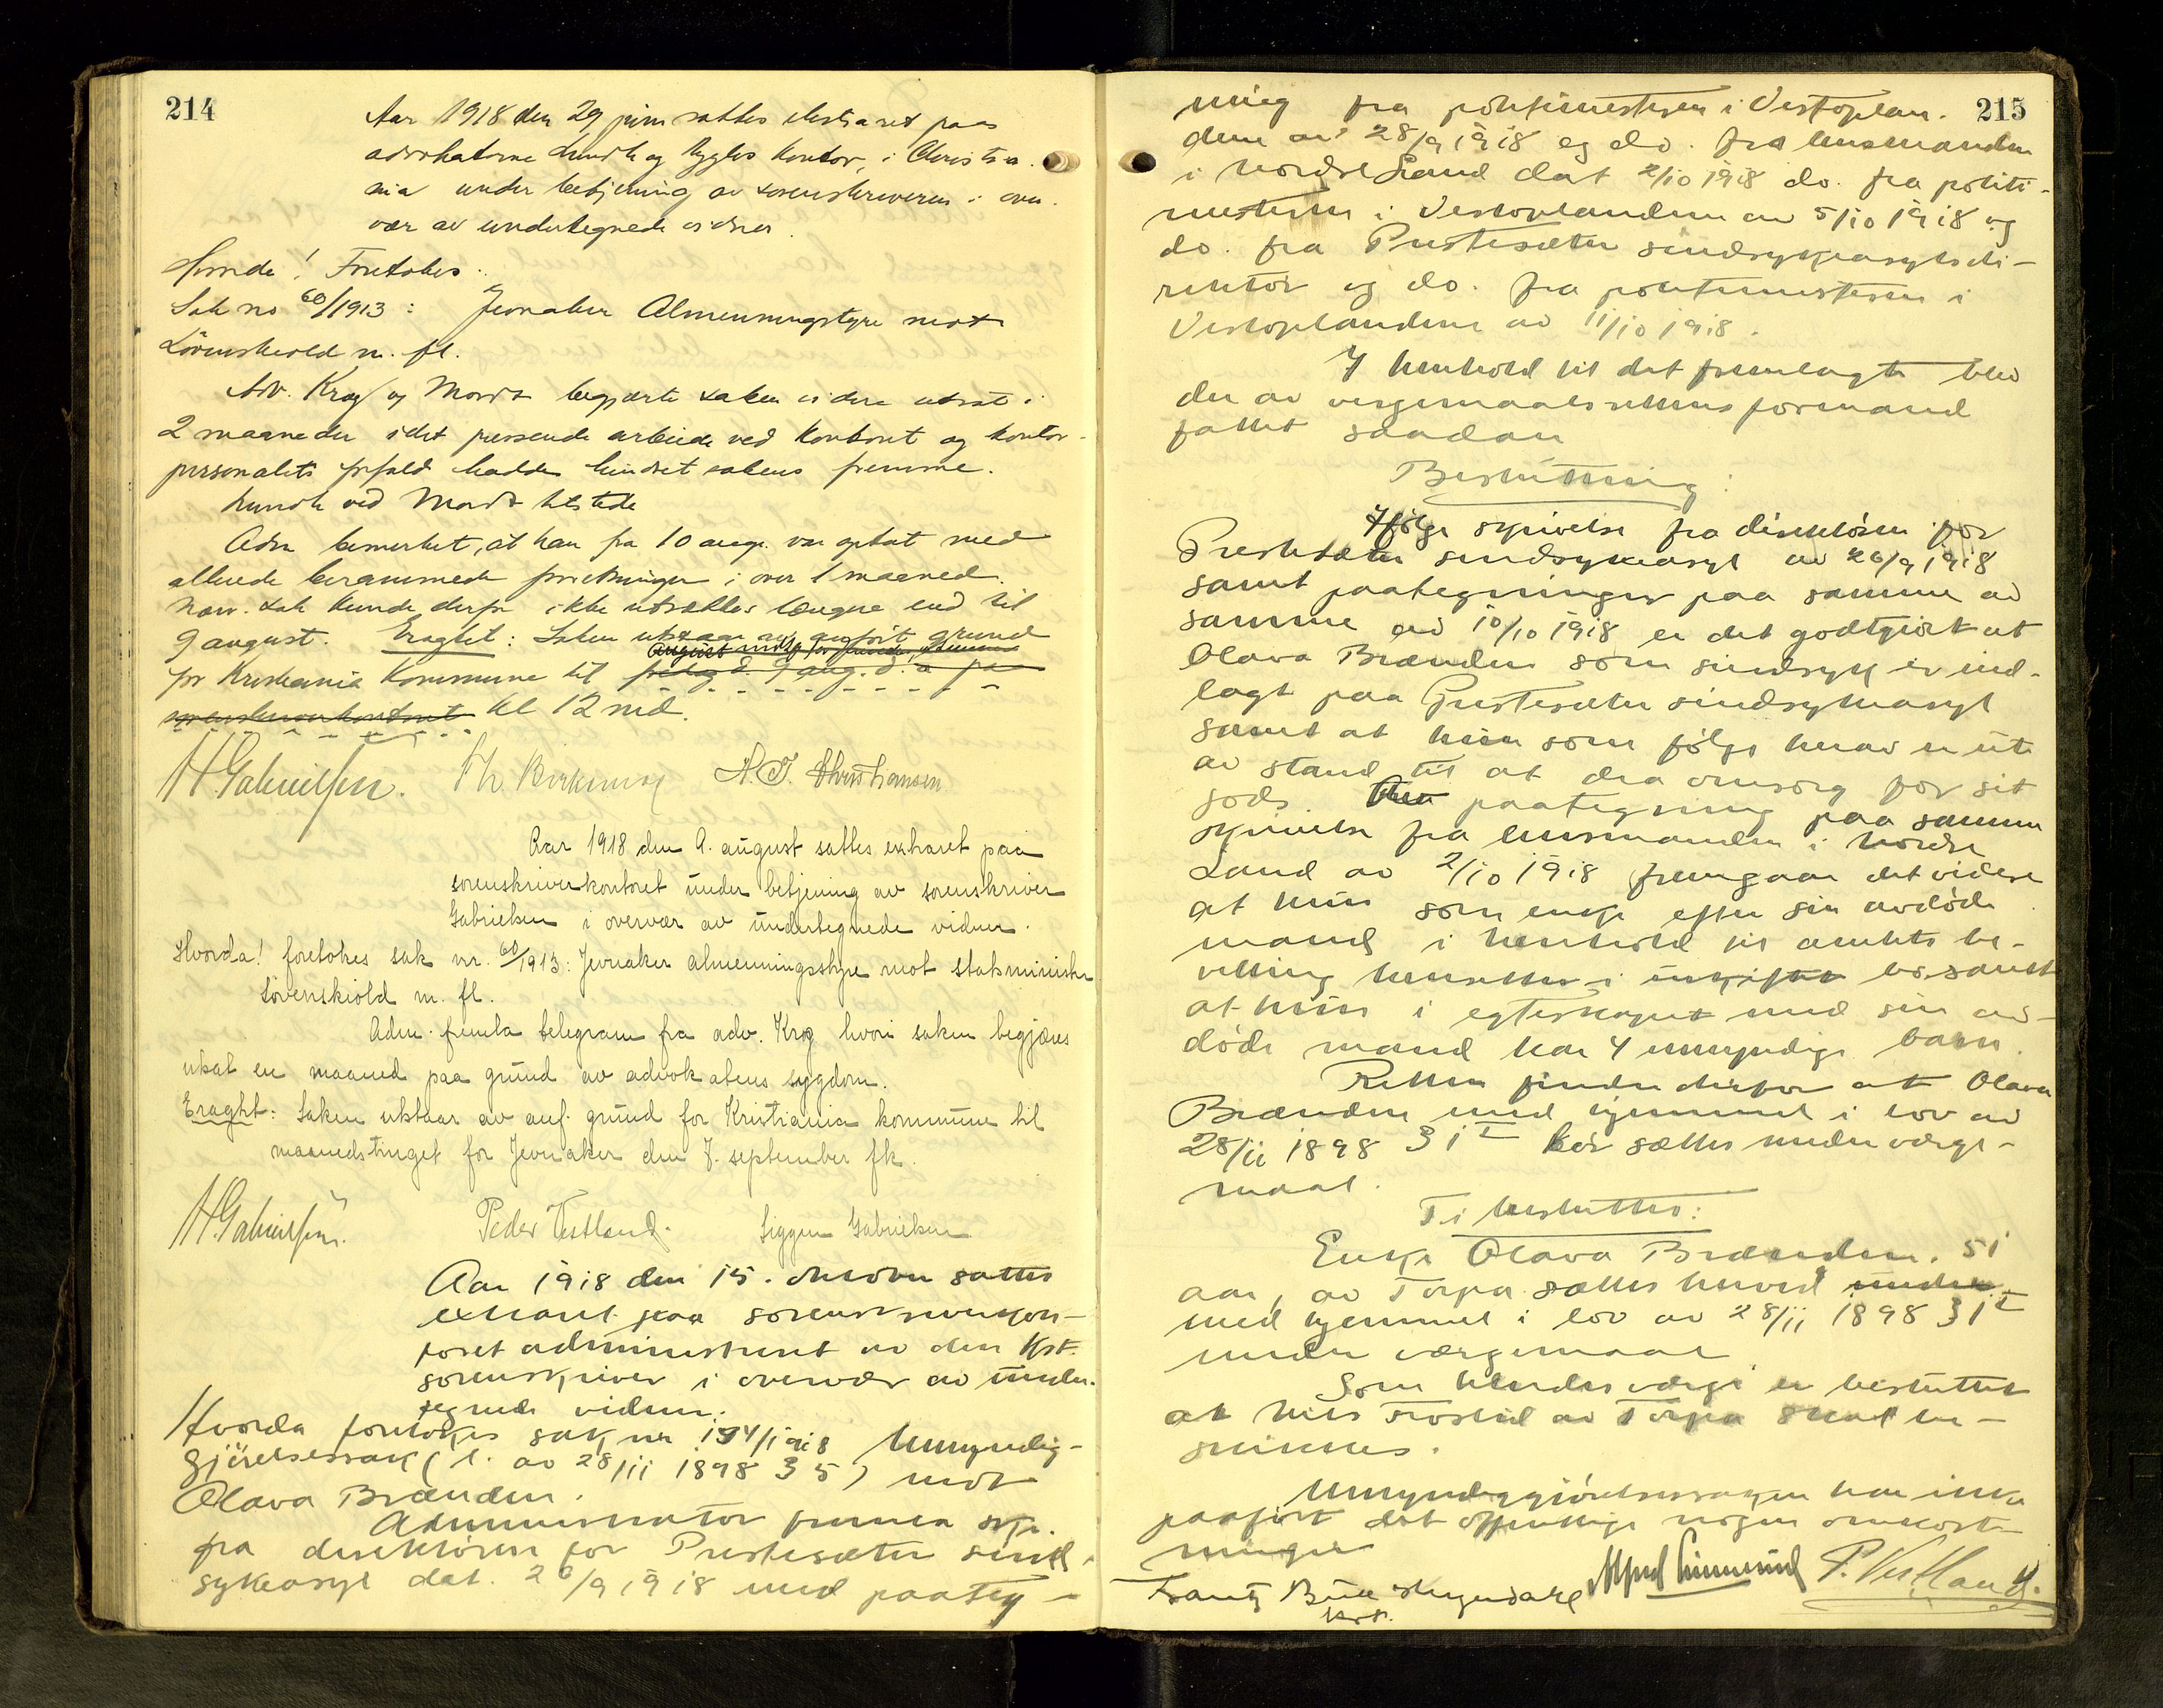 214
Aar 1918 den 29 juni sattes ekstraret paa
advokaterne Lundh og Kygles kontor, i Christia-
nia under betjening av sorenskriveren i over-
vær av undertegnede vidner.
Hvorda! Foretokes:
Sak no 60/1913: Jevnaker Almenningstyre mot
Løvenskiold m. fl.
Adv. Krag og Mordt begjærte saken videre utsat i
2 maaneder idet pressende arbeide ved kontoret og kontor-
personalets forfald hadde hindret sakens fremme.
Lundh ved Mordt tilstede
Adm bemerket, at han fra 10 aug. var optat med
allerede berammede forretninger i over 1 maaned.
Nærv. sak kunde derfor ikke utsættes længere end til
9 august. Eragtet: Saken utstaar av anført grund
for Kristiania Kommune til fredag d. 9 aug. d. a. paa
sorenskriverkontoret kl 12 md.
H Gabrielsen. Th. Birkeneng N. T. Christiansen
Aar 1918 den 9. august sattes extraret paa
sorenskriverkontoret under betjening av sorenskriver
Gabrielsen i overvær av undertegnede vidner.
Hvorda! foretokes sak nr. 60/1913: Jevnaker almenningsstyre mot statsminister
Løvenskiold m. fl.
Adm. fremla telegram fra adv. Krag hvori saken begjæres
utsat en maaned paa grund av advokatens sygdom.
Eragtet: Saken utstaar av anf. grund for Kristiania kommune til
maanedstinget for Jevnaker den 7. september fk.
H. Gabrielsen. Peder Vestland. Siggen Gabrielsen
Aar 1918 den 15. oktober sattes
extraret paa sorenskriverkon-
toret administrert av den kst.
sorenskriver i overvær av under-
tegnede vidner.
Hvorda foretokes sak nr 194/1918 Umyndig-
gjørelsessak (l. av 28/11 1898 § 5) mot
Olava Brænden.
Administrator fremla skr.
fra direktøren for Prestesæter sind-
sykeasyl dat. 26/9 1918 med paateg-
215
ning fra politimesteren i Vestoplan-
dene av 28/9 1918 og do. fra lensmanden
i Nordre Land dat 2/10 1918 do. fra politi-
mesteren i Vestoplandene av 5/10 1918 og
do. fra Prestesæter sindsykeasyls di-
rektør og do. fra politimesteren i
Vestoplandene av 11/10 1918.
I henhold til det fremlagte blev
der av vergemaalsrettens formand
fattet saadan
Beslutning:
Ifølge skrivelse fra direktøren for
Prestesæter sindsykeasyl av 26/9 1918
samt paategninger paa samme av
samme av 10/10 1918 er det godtgjort at
Olava Brænden som sindsyk er ind-
lagt paa Prestesæter sindsykeasyl
samt at hun som følge herav er ute
av stand til at dra omsorg for sit
gods. Av paategning paa samme
skrivelse fra lensmanden i Nordre
Land av 2/10 1918 fremgaar det videre
at hun som enke efter sin avdøde
mand i henhold til amtets be-
villing hensitter i uskiftet bo samt
at hun i egteskapet med sin av-
døde mand har 4 umyndige barn.
Retten finder derfor at Olava
Brænden med hjemmel i lov av
28/11 1898 § 1 I bør sættes under værge-
maal.
Ti besluttes:
Enke Olava Brænden, 51
aar, av Torpa sættes herved under
med hjemmel i lov av 28/11 1898 § 1 I
under værgemaal
Som hendes værge er besluttet
at Nils Frøslid av Torpa skal be-
skikkes.
Umyndiggjørelsessaken har ikke
paaført det offentlige nogen omkost-
ninger
Frantz Bull Skyndahl kst. Alfred Linnerud P. Vestland.